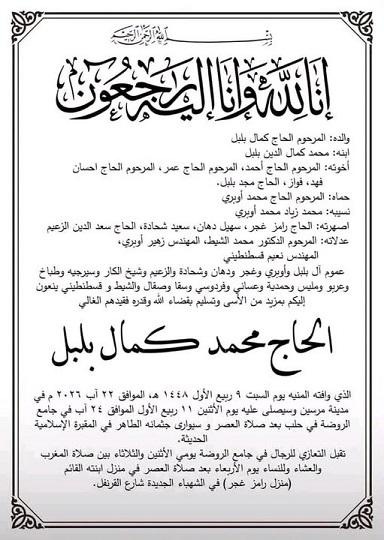 بسم الله الرحمن الرحيم
إنا لله وإنا إليه راجعون
والده: المرحوم الحاج كمال بلبل
ابنه: محمد كمال الدين بلبل
أخوته: المرحوم الحاج أحمد، المرحوم الحاج عمر، المرحوم الحاج احسان
فهد، فواز، الحاج مجد بلبل.
حماه: المرحوم الحاج محمد أوبري
نسيبه: محمد زياد محمد أوبري
اصهرته: الحاج رامز غجر، سهيل دهان، سعيد شحادة، الحاج سعد الدين الزعيم
عدلاته: المرحوم الدكتور محمد الشيط، المهندس زهير أوبري،
المهندس نعيم قسطنطيني
عموم آل بلبل وأوبري وغجر ودهان وشحادة والزعيم وشيخ الكار وسيرجيه وطباخ
وعربو وملبس وحمدية وعساني وفردوسي وسقا وصقال والشيط و قسطنطيني ينعون
إليكم بمزيد من الأسى وتسليم بقضاء الله وقدره فقيدهم الغالي
الحاج محمد كمال بلبل
الذي وافته المنيه يوم السبت ٩ ربيع الأول ١٤٤٨ هـ، الموافق ٢٢ آب ٢٠٢٦ م في
مدينة مرسين وسيصلى عليه يوم الأثنين ١١ ربيع الأول الموافق ٢٤ آب في جامع
الروضة في حلب بعد صلاة العصر و سيوارى جثمانه الطاهر في المقبرة الإسلامية
الحديثة.
تقبل التعازي للرجال في جامع الروضة يومي الأثنين والثلاثاء بين صلاة المغرب
والعشاء وللنساء يوم الأربعاء بعد صلاة العصر في منزل ابنته القائم
(منزل رامز غجر) في الشهباء الجديدة شارع القرنفل.